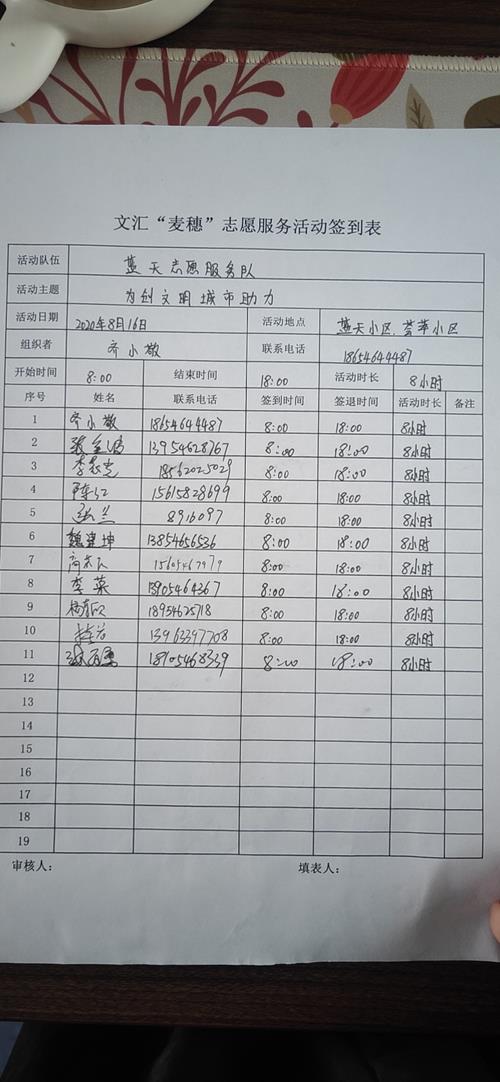 文汇“麦穗”志愿服务活动签到表
活动队伍 蓝天志愿服务队
活动主题 为创文明城市助力
活动日期 2020年8月16日 活动地点 蓝天小区、荟萃小区
组织者 齐小敬 联系电话 18654644487
开始时间 8:00 结束时间 18:00 活动时长 8小时
序号 姓名 联系电话 签到时间 签退时间 活动时长 备注
1 齐小敬 18654644487 8:00 18:00 8小时
2 13954628767 8:00 18:00 8小时
3 18562025029 8:00 18:00 8小时
4 15615828699 8:00 18:00 8小时
5 8916097 8:00 18:00 8小时
6 魏建坤 13854656536 8:00 18:00 8小时
7 8:00 18:00 8小时
8 李菜 13905464367 8:00 18:00 8小时
9 18954625718 8:00 18:00 8小时
10 13963397708 8:00 18:00 8小时
11 18905468339 8:00 18:00 8小时
12
13
14
15
16
17
18
19
审核人： 填表人：